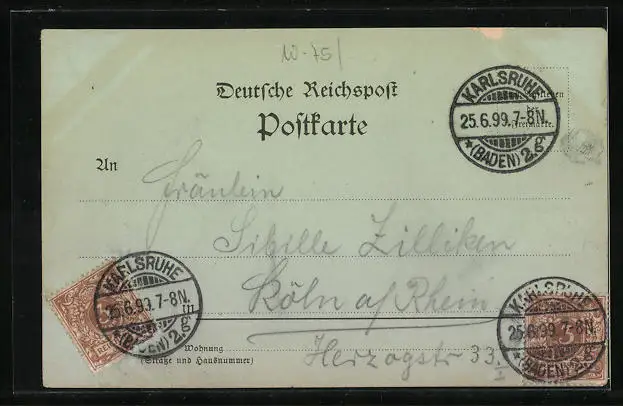 10-75/
Deutsche Reichspost
Postkarte
KARLSRUHE
25.6.99.7-8N.
*(BADEN)2.g
der
Freimarke.
An
Fräulein
Sibille Zilliken
Köln a/Rhein
in
Wohnung
(Straße und Hausnummer)
Herzogstr 33
KARLSRUHE
25.6.99.7-8N.
*(BADEN)2.g
KARLSRUHE
25.6.99.7-8N.
*(BADEN)2.g